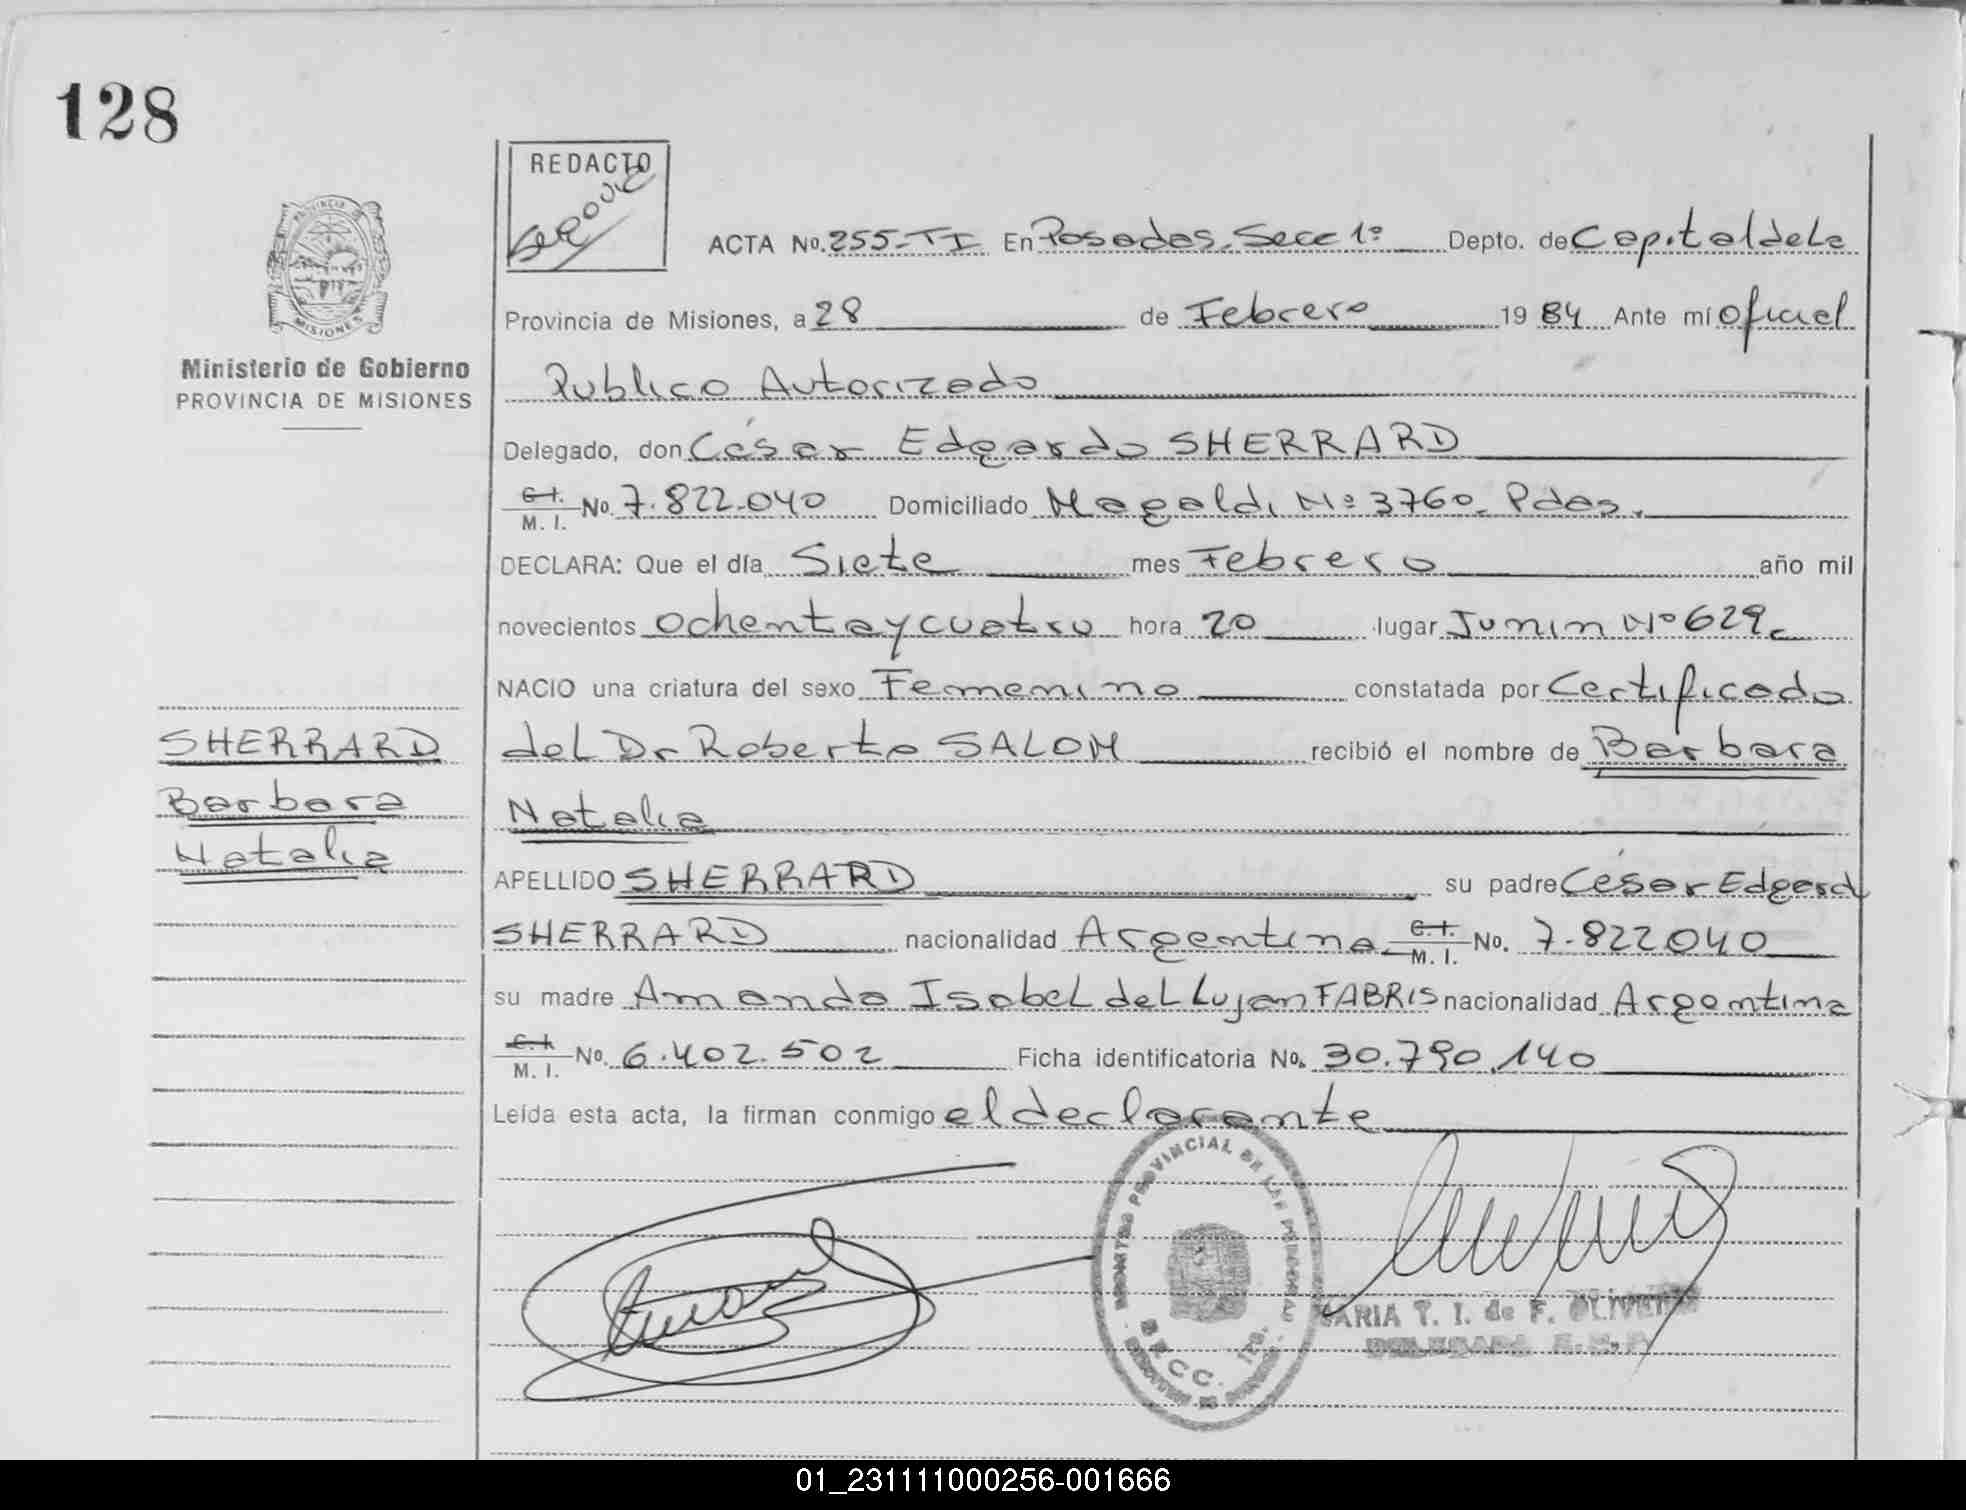 128
REDACTO
PROVINCIA DE
MISIONES
Ministerio de Gobierno
PROVINCIA DE MISIONES
ACTA No. 255-TI En Posadas, Secc 1º Depto. de Capital de la
Provincia de Misiones, a 28 de Febrero 19 84 Ante mí Oficial
Publico Autorizado
Delegado, don César Edgardo SHERRARD
C. I. M. I. No. 7.822.040 Domiciliado Magaldi Nº 3760. Pdas.
DECLARA: Que el día Siete mes Febrero año mil
novecientos ochenta y cuatro hora 20 lugar Junin Nº 629
NACIO una criatura del sexo Femenino constatada por Certificado
del Dr Roberto SALOM recibió el nombre de Barbara
Natalia
APELLIDO SHERRARD su padre César Edgard
SHERRARD nacionalidad Argentina C. I. M. I. No. 7.822040
su madre Amanda Isabel del Lujan FABRIS nacionalidad Argentina
C. I. M. I. No. 6.402.502 Ficha identificatoria No. 30.790.140
Leída esta acta, la firman conmigo el declarante
SHERRARD
Barbara
Natalia
PROVINCIAL DE LAS PERSONAS
MARIA T. I. de F. OLIVERA
01_231111000256-001666